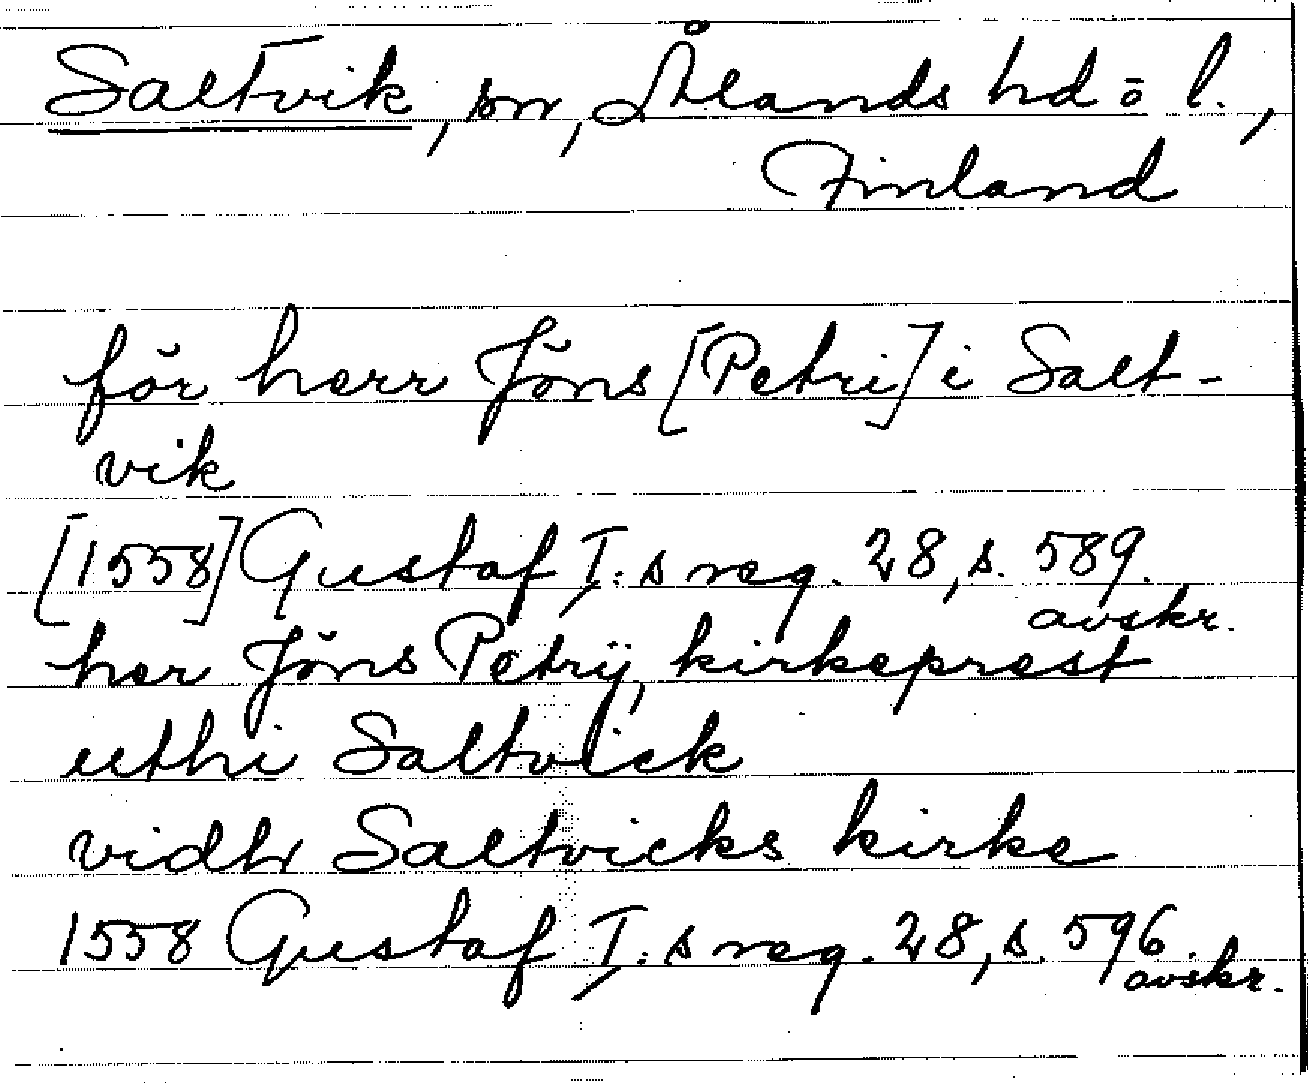 Saltvik, sn, Ålands hd o l.,
Finland
för herr Jöns [Petri] i Salt-
vik
[1558] Gustaf I:s reg. 28, s. 589.
avskr.
her Jöns Petrij, kirkeprest
uthi Saltvick
vidh Saltvicks kirke
1558 Gustaf I:s reg. 28, s. 596.
avskr.